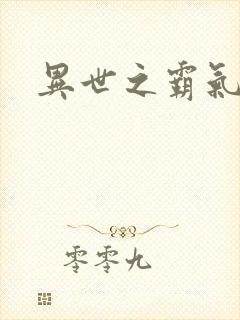 異世之霸氣
零零九